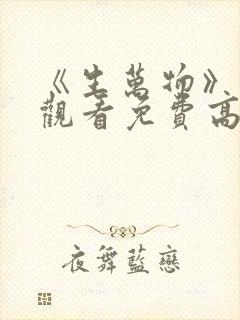 《生萬物》
觀看免費高
夜舞藍戀